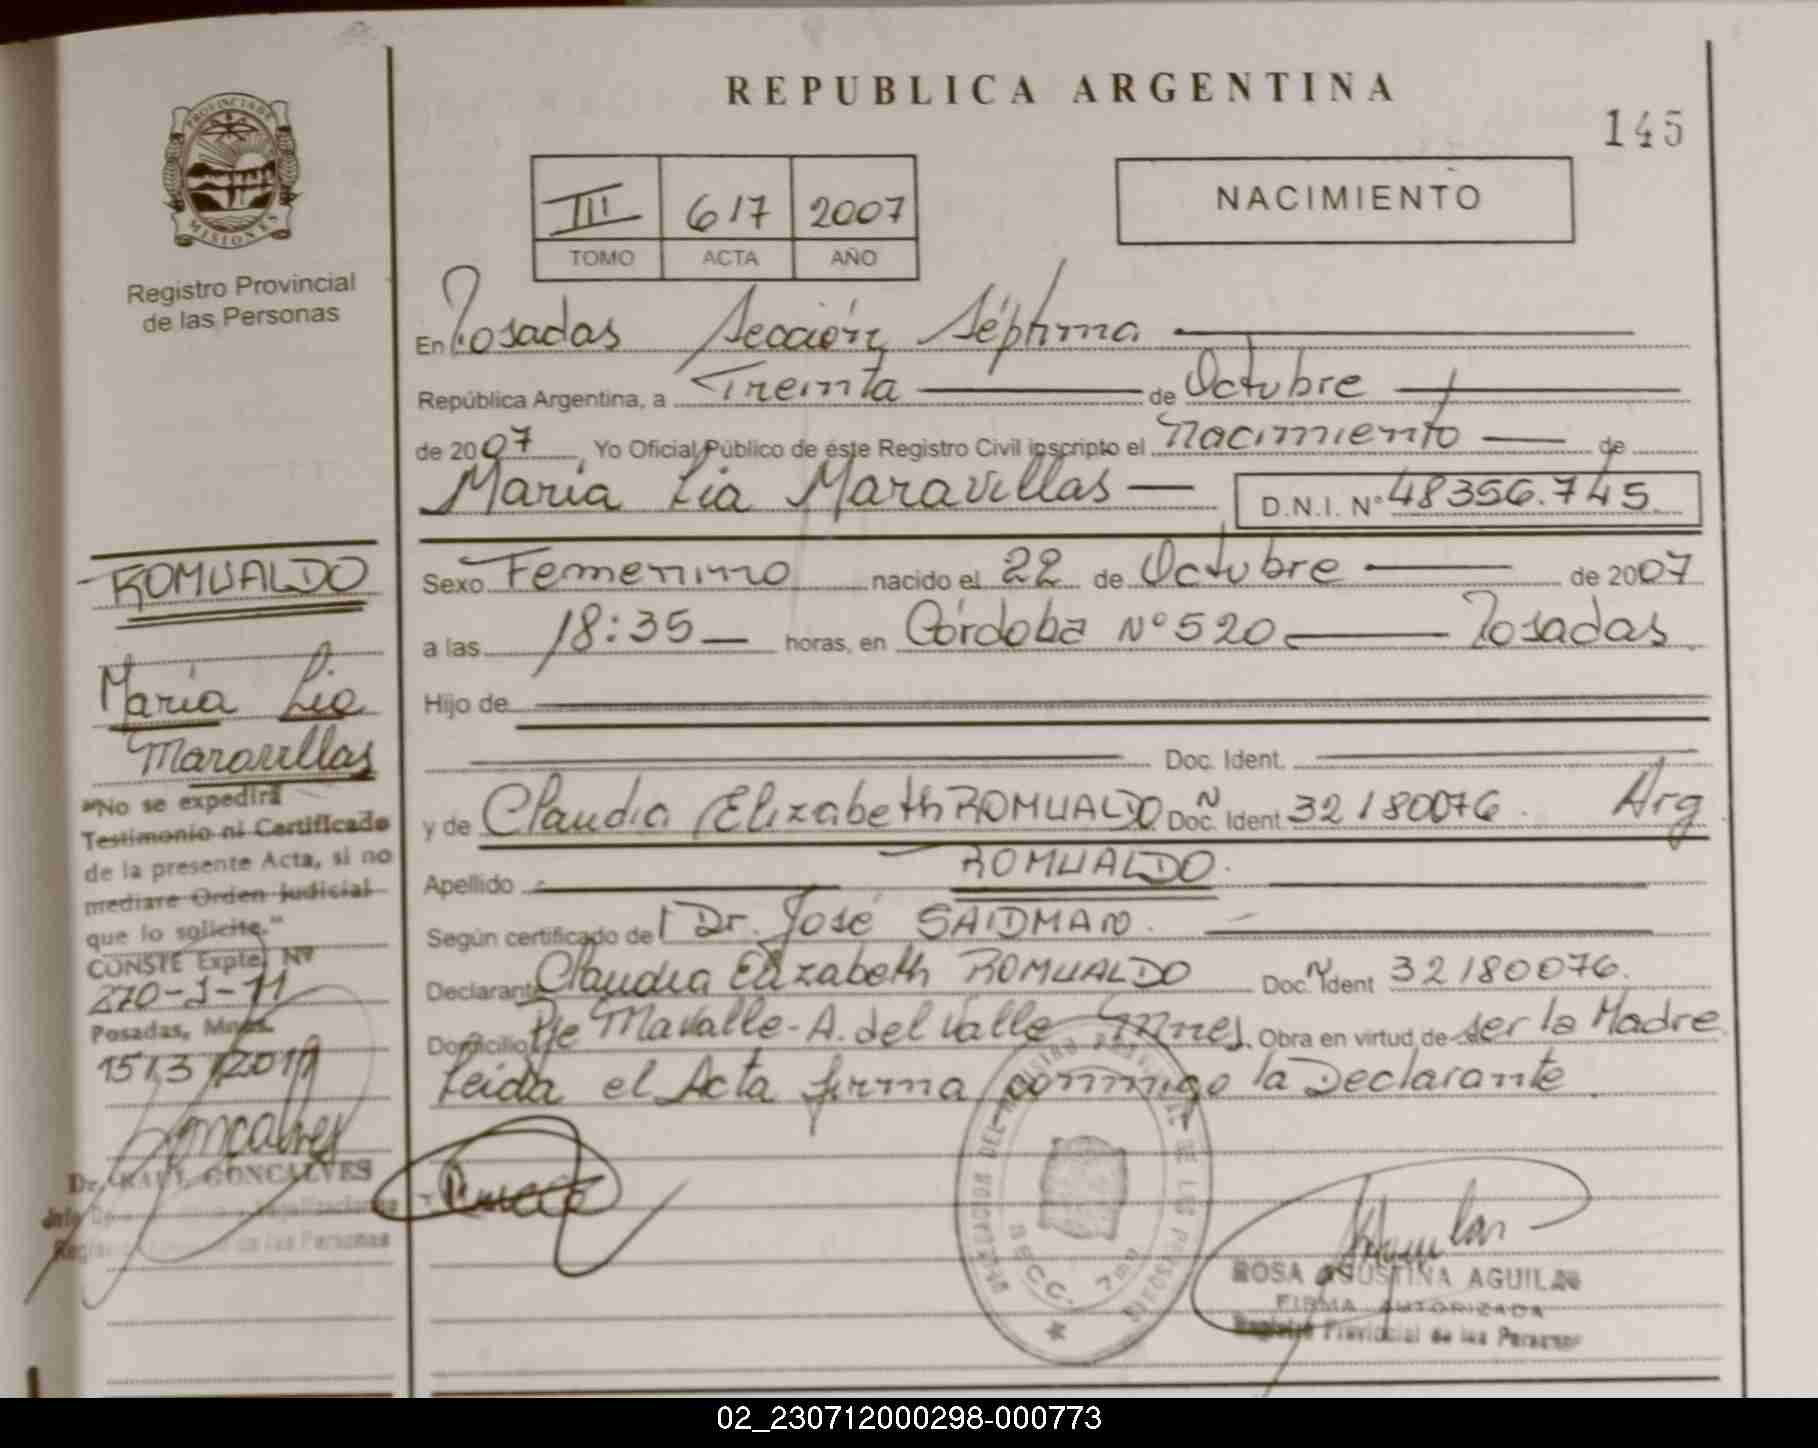 REPUBLICA ARGENTINA
145
PROVINCIA DE
MISIONES
Registro Provincial
de las Personas
III 617 2007
TOMO ACTA AÑO
NACIMIENTO
En Posadas Sección Séptima
República Argentina, a Treinta de Octubre
de 2007, Yo Oficial Público de éste Registro Civil inscripto el Nacimiento de
María Lia Maravillas D.N.I. N° 48356.745
Sexo Femenino nacido el 22 de Octubre de 2007
a las 18:35 horas, en Córdoba N° 520 Posadas
Hijo de
Doc. Ident.
y de Claudia Elizabeth ROMUALDO Doc. N Ident 32180076. Arg
Apellido ROMUALDO.
Según certificado del Dr. José SAIDMAN.
Declarante Claudia Elizabeth ROMUALDO Doc. N Ident 32180076.
Domicilio Pje Mavalle-A. del Valle Mnes. Obra en virtud de ser la Madre
Leida el Acta firma conmigo la Declarante
ROMUALDO
María Lia
Maravillas
"No se expedirá
Testimonio ni Certificado
de la presente Acta, si no
mediare Orden Judicial
que lo solicite."
CONSTE Expte. Nº
270-J-11
Posadas, Mnes.
15/3/2011
Goncalves
Dr. RAUL GONCALVES
de las Personas
SECC. 7ma
Aguilar
ROSA AGUSTINA AGUILAR
FIRMA AUTORIZADA
Registro Provincial de las Personas
02_230712000298-000773